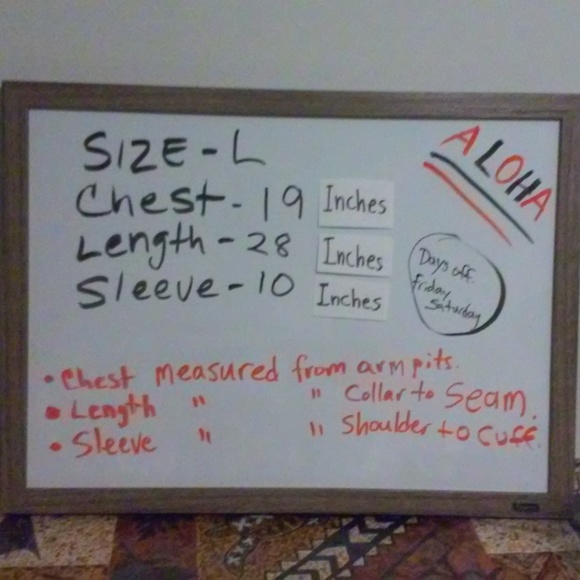 SIZE - L
Chest - 19 Inches
Length - 28 Inches
Sleeve - 10 Inches
ALOHA
Days off.
friday
Saturday
• Chest measured from armpits.
• Length " " Collar to Seam.
• Sleeve " " Shoulder to Cuff.